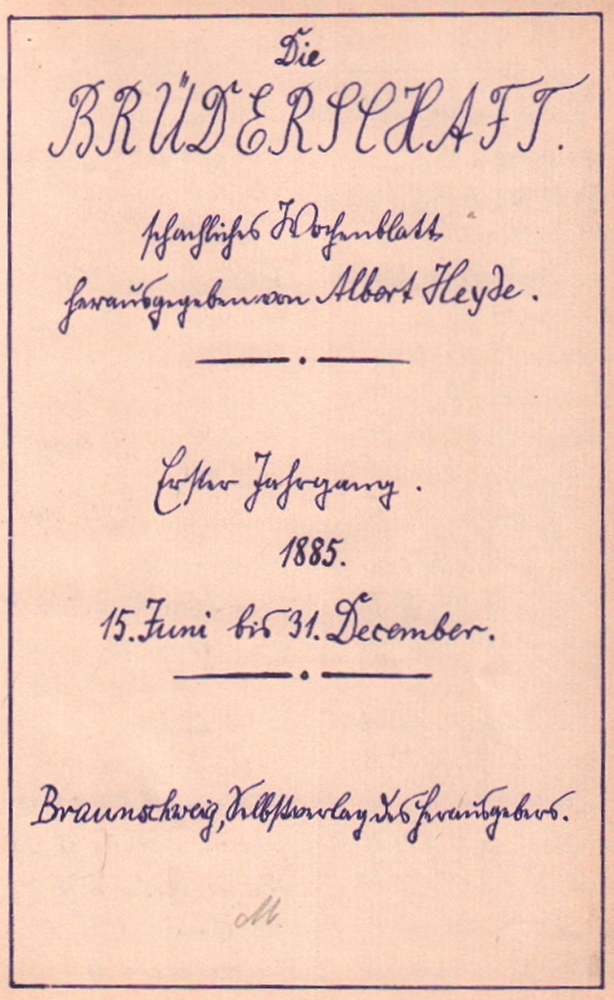 Die
BRÜDERSCHAFT.
schachliches Wochenblatt
herausgegeben von Albert Heyde.
Erster Jahrgang.
1885.
15. Juni bis 31. December.
Braunschweig, Selbstverlag des Herausgebers.
M.